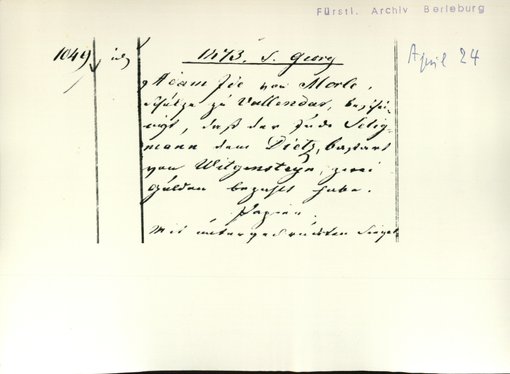 Fürstl. Archiv Berleburg
1049
1473. S. Georg
April 24
Adam von Morle,
Schütze zu Vallendar, beschei-
nigt, daß der Jude Selig-
mann dem Dietz, bastart
von Witgensteyn, zwei
Gulden bezahlt habe.
Papier.
Mit untergedrücktem Siegel